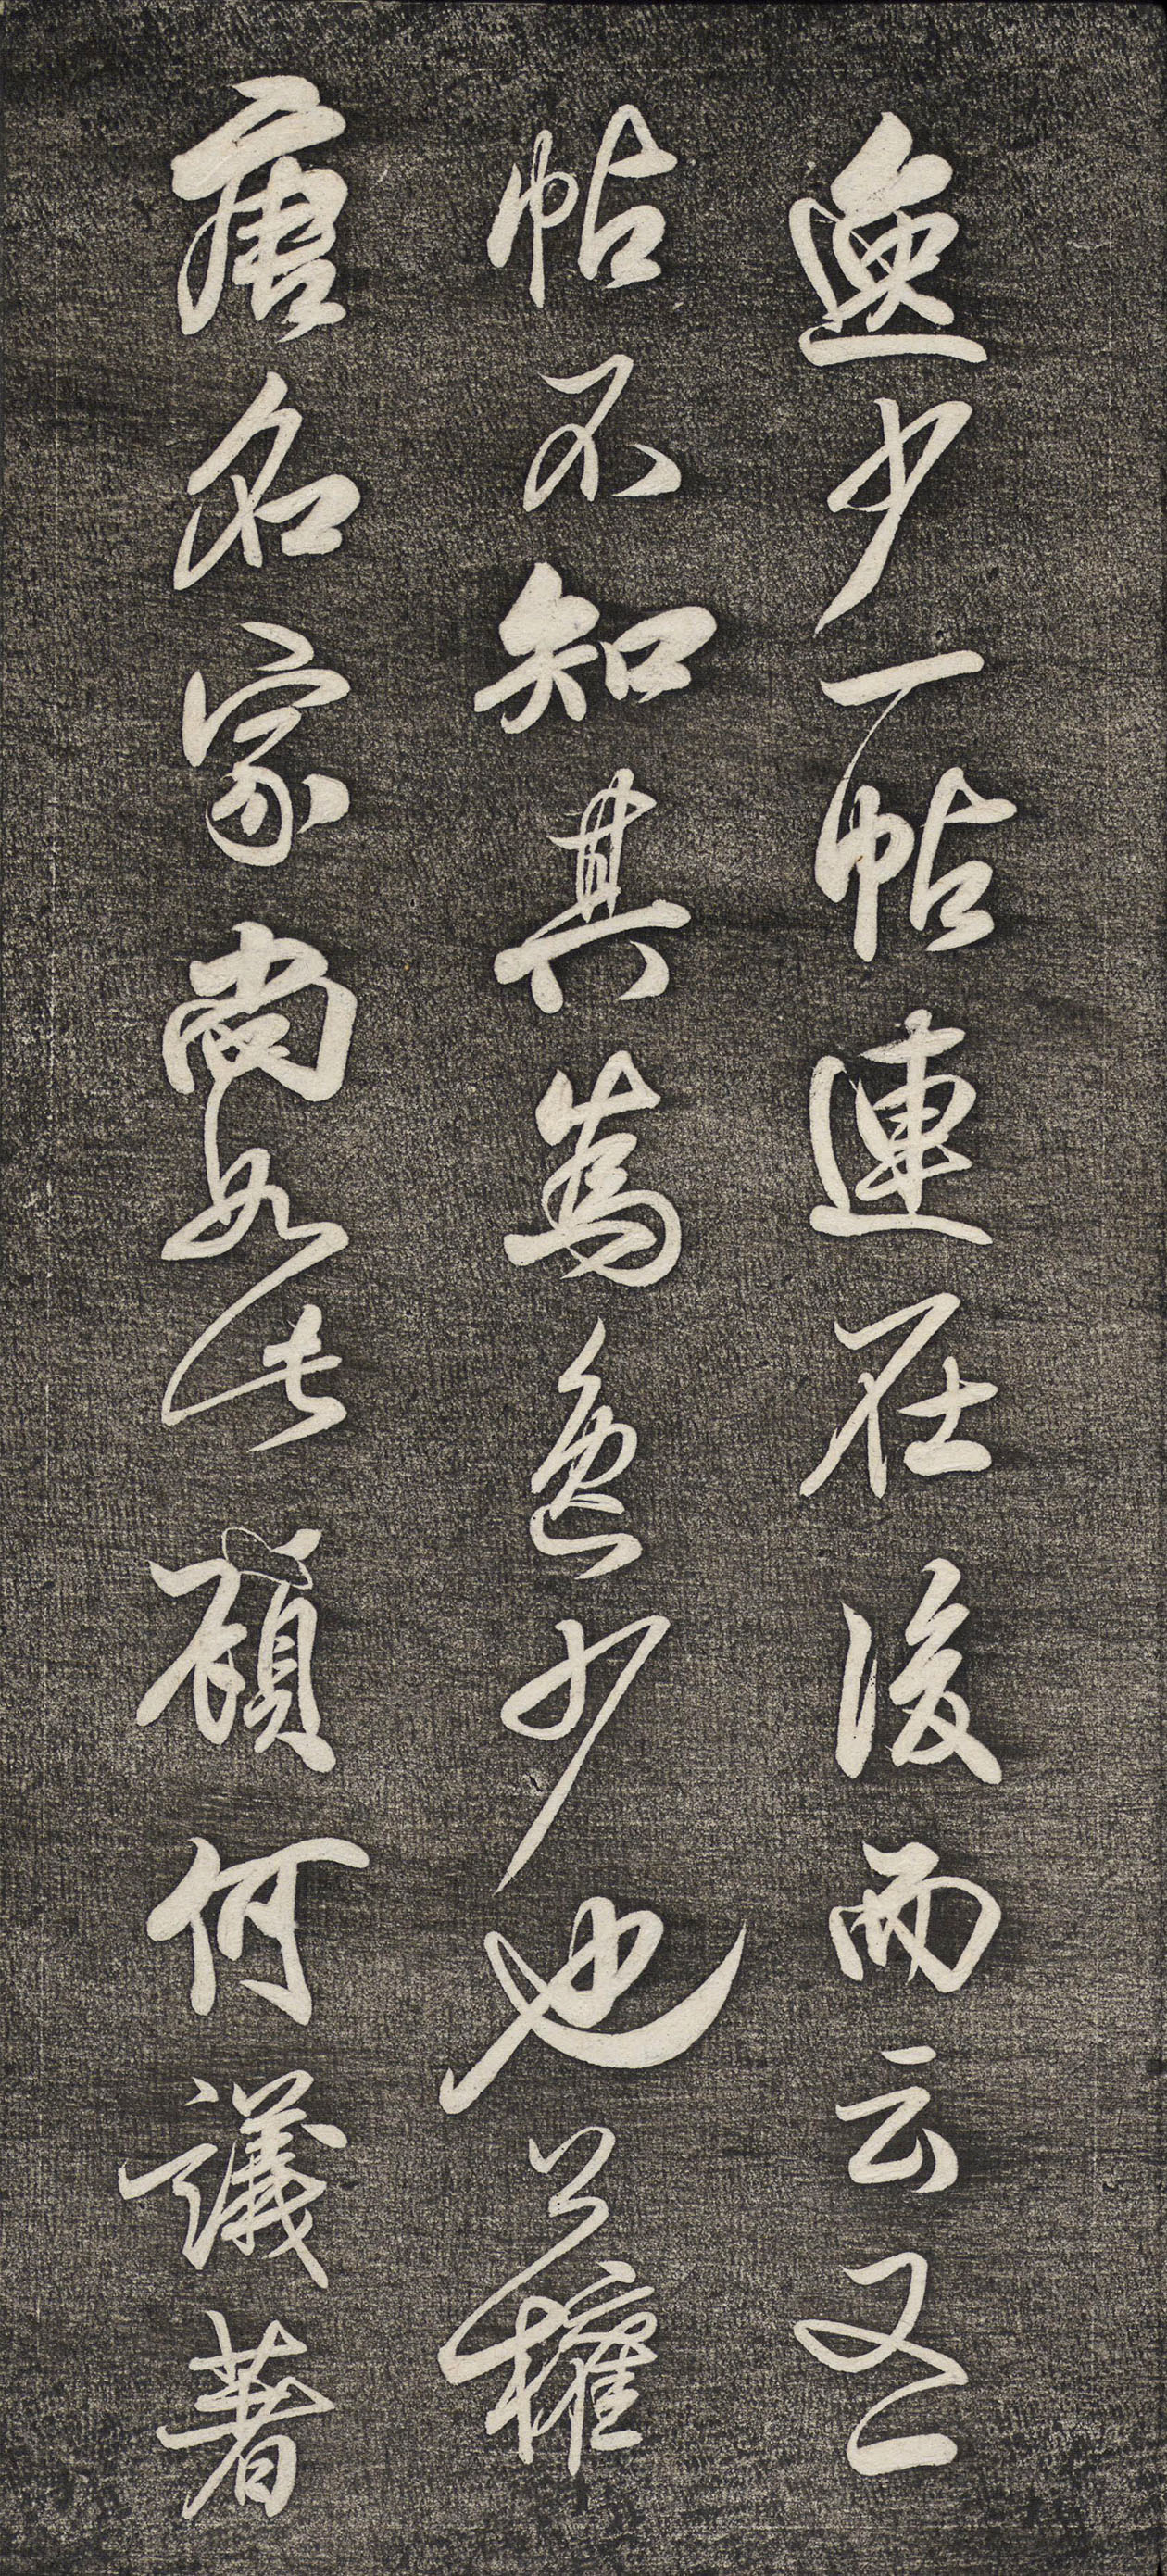 逸少一帖連在後而云又一
帖不知其為逸少也公權
唐名家尚如此顧何議著